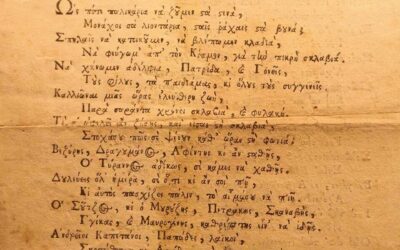 Ὡς πότε παλικάρια νὰ ζῦμεν ςὰ ςενὰ,
Μονάχοι σὰ λιοντάρια, ςαῖς ράχαις ςὰ βυνά;
Σπηλαὶς νὰ κατοικῦμεν, νὰ βλέπωμεν κλαδιά,
Νὰ φεύγωμ' ἀπ' τὸν Κόσμον, γιὰ τὴν πικρὴ σκλαβιά.
Νὰ χάνωμεν ἀδέλφια, Πατρίδα, & Γονεῖς,
Τὺς φίλυς, τὰ παιδιάμας, κι' ὅλυς τὺς συγγενεῖς.
Καλλίναι μιᾶς ὥρας ἐλεύθερη ζωή,
Παρὰ σαράντα χρόνοι σκλαβιά, & φυλακή.
Τί σ' ὠφελεῖ ἂν ζήσῃς, καὶ εἶσαι ςὴ σκλαβιά,
Στοχάσυ πῶς σὲ ψένυν καθ' ὥραν ςὴ φωτιά;
Βεζύρης, Δραγυμάνος, Ἀφέντης κι' ἂν σταθῇς,
Ὁ Τύραννος ἀδίκως, σὲ κάμει νὰ χαθῇς.
Δυλεύεις ὅλ' ἡμέρα, σὲ ὅ,τι κι' ἄν σοι πῇ,
Κι' αὐτὸς πασχίζει πάλιν, τὸ αἷμμσυ νὰ πιῇ.
Ὁ Σύτζος, κι' ὁ Μυρύζης, Πετράκης, Σκαναβῆς,
Γγίκας, & Μαυρογένης, καθρέπτης εἶν' νὰ ἰδῇς.
Ἀνδρεῖοι Καπιτάνοι, Παπάδες, λαϊκοί,